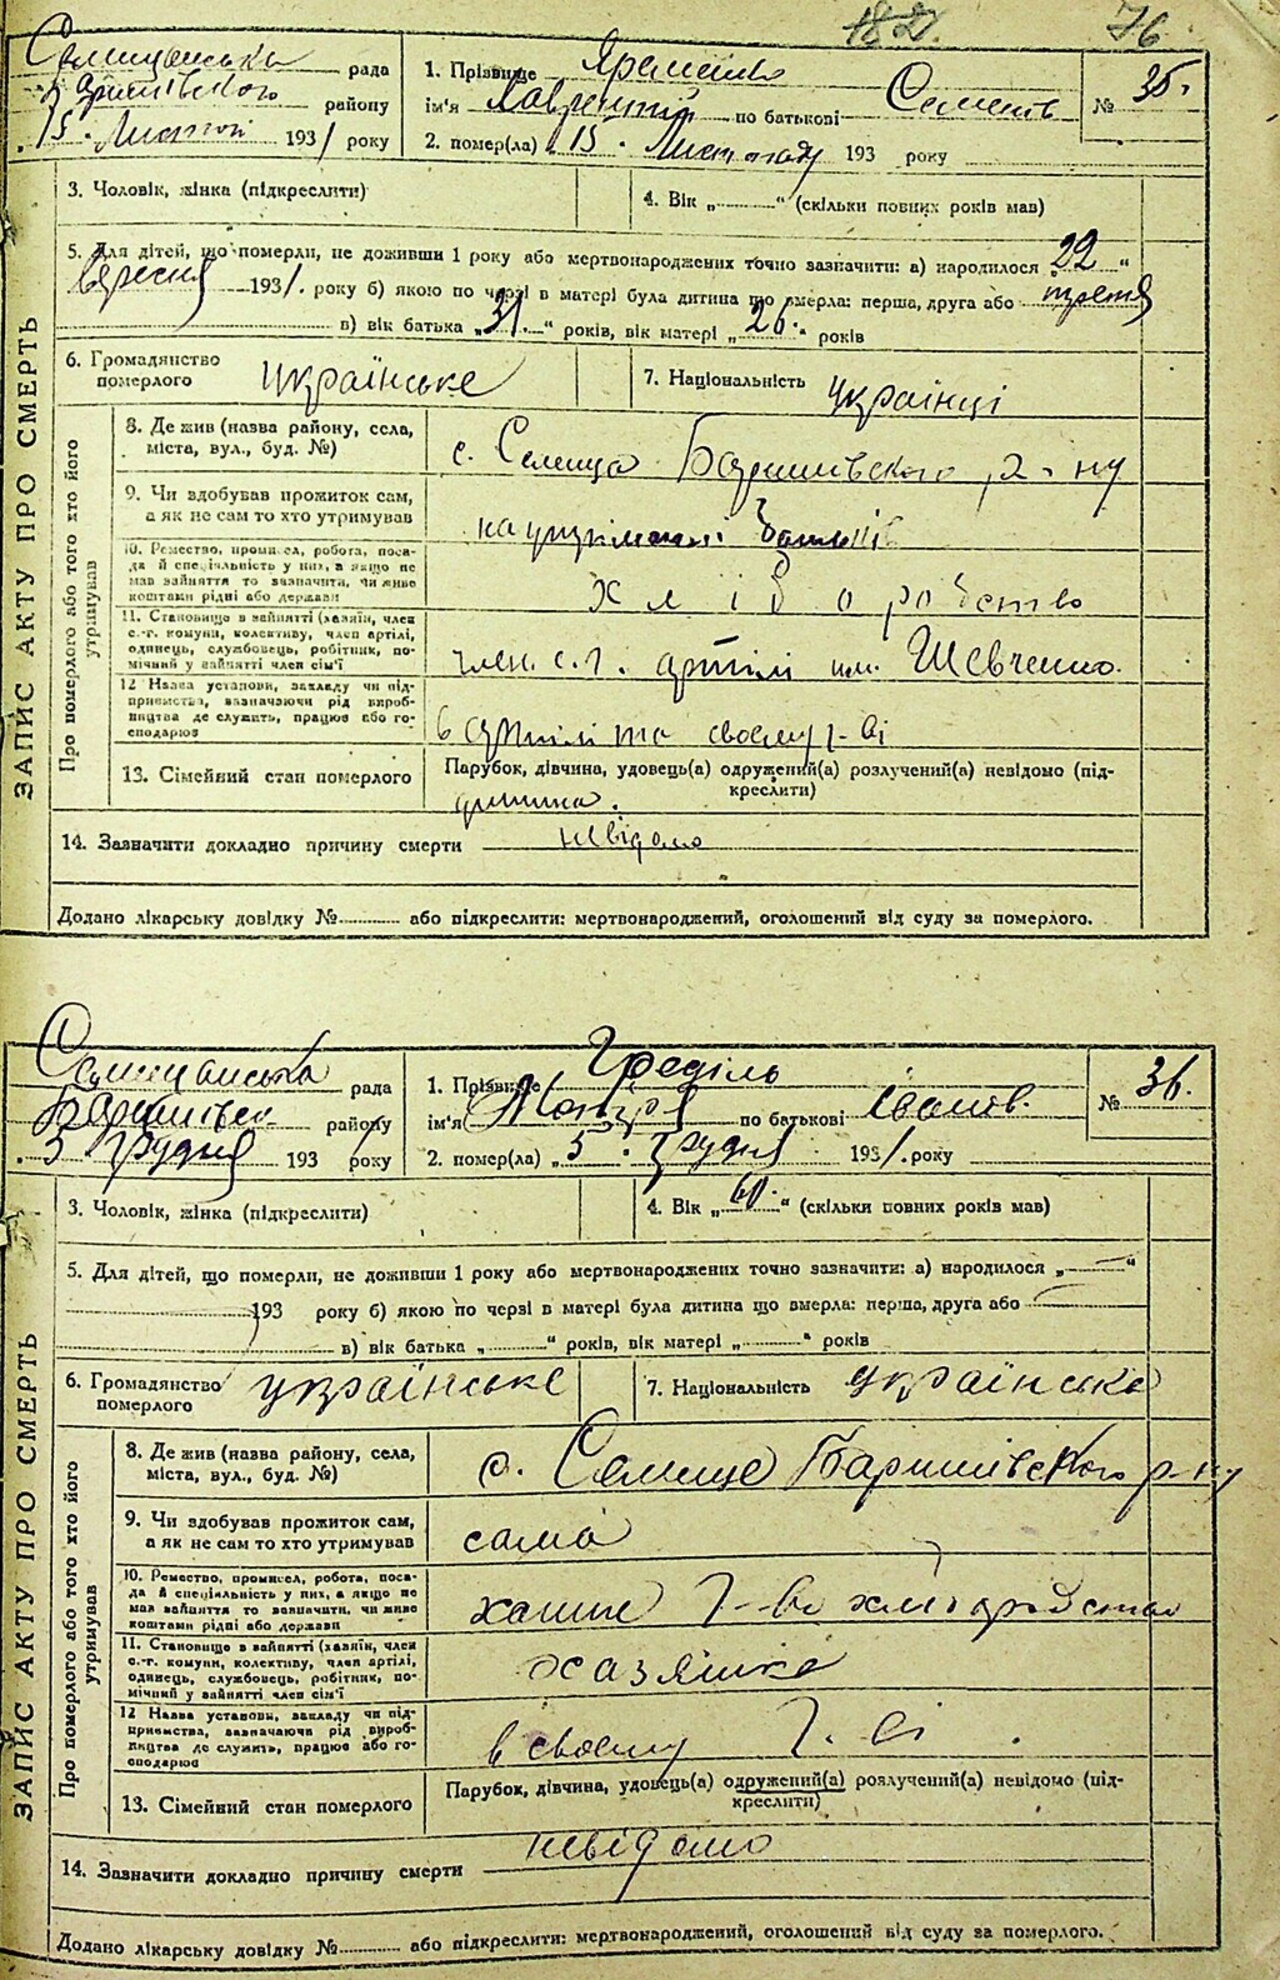 182. 76
Селищанська рада
району
15. Листоп 1931 року
1. Прізвище Яременко
ім'я Лаврентій по батькові Семенів
2. помер(ла) „15. Листопаду 193 року
№ 35.
3. Чоловік, жінка (підкреслити)
4. Вік „ “ (скільки повних років мав)
5. Для дітей, що померли, не доживши 1 року або мертвонароджених точно зазначити: а) народилося „22“
вересня 1931. року б) якою по черзі в матері була дитина що вмерла: перша, друга або третя
в) вік батька „31.“ років, вік матері „26.“ років
6. Громадянство
померлого
українське
7. Національність українці
ЗАПИС АКТУ ПРО СМЕРТЬ
Про померлого або того хто його
утримував
8. Де жив (назва району, села,
міста, вул., буд. №)
с. Селище Баришівського р-ну
9. Чи здобував прожиток сам,
а як не сам то хто утримував
на утриманні батьків
10. Ремество, промисел, робота, поса-
да й спеціяльність у них, а якщо не
мав зайняття то зазначити, чи живе
коштами рідні або держави
хліборобство
11. Становище в зайнятті (хазяїн, член
с.-г. комуни, колективу, член артілі,
одинець, службовець, робітник, по-
мічний у зайнятті член сім'ї
член. с. г. артілі им. Шевченко.
12 Назва установи, закладу чи під-
приємства, зазначаючи рід вироб-
ництва де служить, працює або го-
сподарює
в артілі та своєму г-ві
13. Сімейний стан померлого
Парубок, дівчина, удовець(а) одружений(а) розлучений(а) невідомо (під-
креслити)
дитина.
14. Зазначити докладно причину смерти невідомо
Додано лікарську довідку № або підкреслити: мертвонароджений, оголошений від суду за померлого.
Селищанська рада
Баришівськ. району
5 грудня 193 року
1. Прізвище
ім'я по батькові Іванів.
2. помер(ла) „5. Грудня 1931. року
№ 36.
3. Чоловік, жінка (підкреслити)
4. Вік „60.“ (скільки повних років мав)
5. Для дітей, що померли, не доживши 1 року або мертвонароджених точно зазначити: а) народилося „ “
193 року б) якою по черзі в матері була дитина що вмерла: перша, друга або
в) вік батька „ “ років, вік матері „ “ років
6. Громадянство
померлого
українське
7. Національність українська
ЗАПИС АКТУ ПРО СМЕРТЬ
Про померлого або того хто його
утримував
8. Де жив (назва району, села,
міста, вул., буд. №)
с. Селище Баришівського р-ну
9. Чи здобував прожиток сам,
а як не сам то хто утримував
сама
10. Ремество, промисел, робота, поса-
да й спеціяльність у них, а якщо не
мав зайняття то зазначити, чи живе
коштами рідні або держави
хатнє г-во хліборобство
11. Становище в зайнятті (хазяїн, член
с.-г. комуни, колективу, член артілі,
одинець, службовець, робітник, по-
мічний у зайнятті член сім'ї
хазяйка
12 Назва установи, закладу чи під-
приємства, зазначаючи рід вироб-
ництва де служить, працює або го-
сподарює
в своєму г. ві.
13. Сімейний стан померлого
Парубок, дівчина, удовець(а) одружений(а) розлучений(а) невідомо (під-
креслити)
14. Зазначити докладно причину смерти невідомо
Додано лікарську довідку № або підкреслити: мертвонароджений, оголошений від суду за померлого.